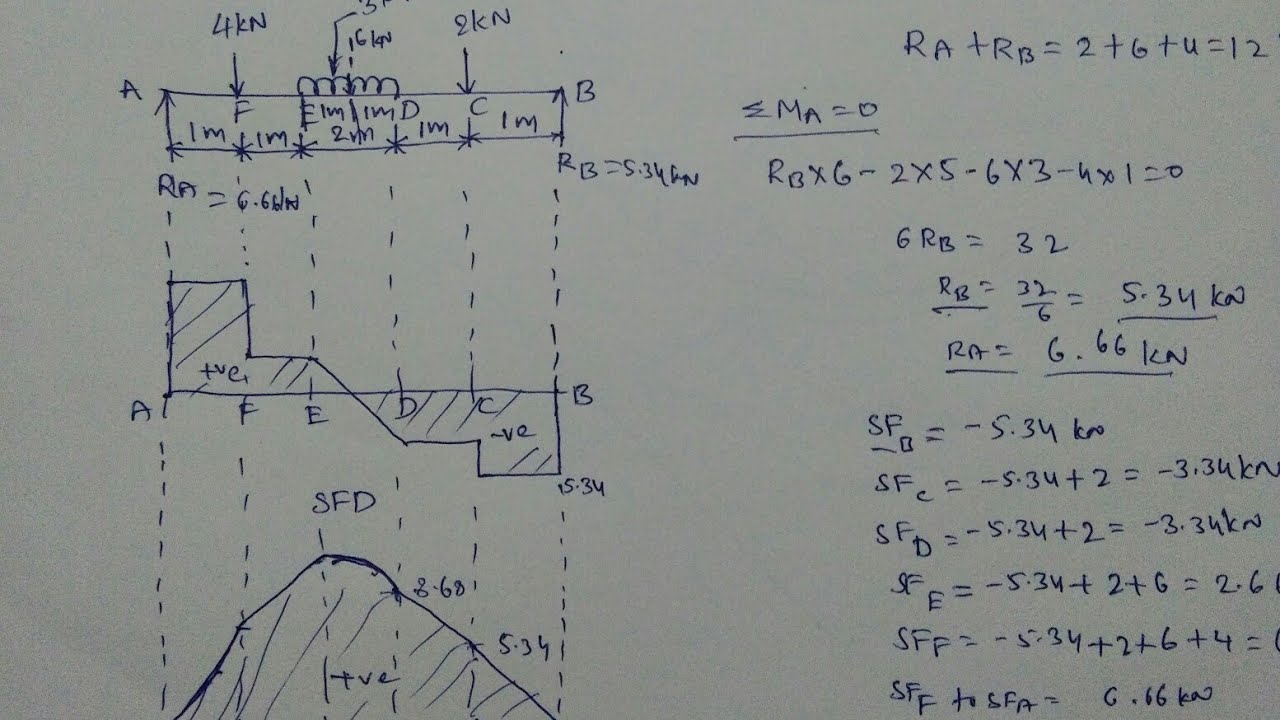 4kN
6kN
2kN
A
B
F
E
1m
1m
D
C
1m
1m
2m
1m
1m
RA = 6.66kN
RB = 5.34kN
+ve
A
F
E
D
C
B
-ve
5.34
SFD
8.68
5.34
+ve
RA + RB = 2 + 6 + 4 = 12
ΣMA = 0
RB × 6 - 2 × 5 - 6 × 3 - 4 × 1 = 0
6RB = 32
RB = 32/6 = 5.34 kN
RA = 6.66 kN
SFB = -5.34 kN
SFC = -5.34 + 2 = -3.34kN
SFD = -5.34 + 2 = -3.34kN
SFE = -5.34 + 2 + 6 = 2.66
SFF = -5.34 + 2 + 6 + 4 =
SFF to SFA = 6.66 kN